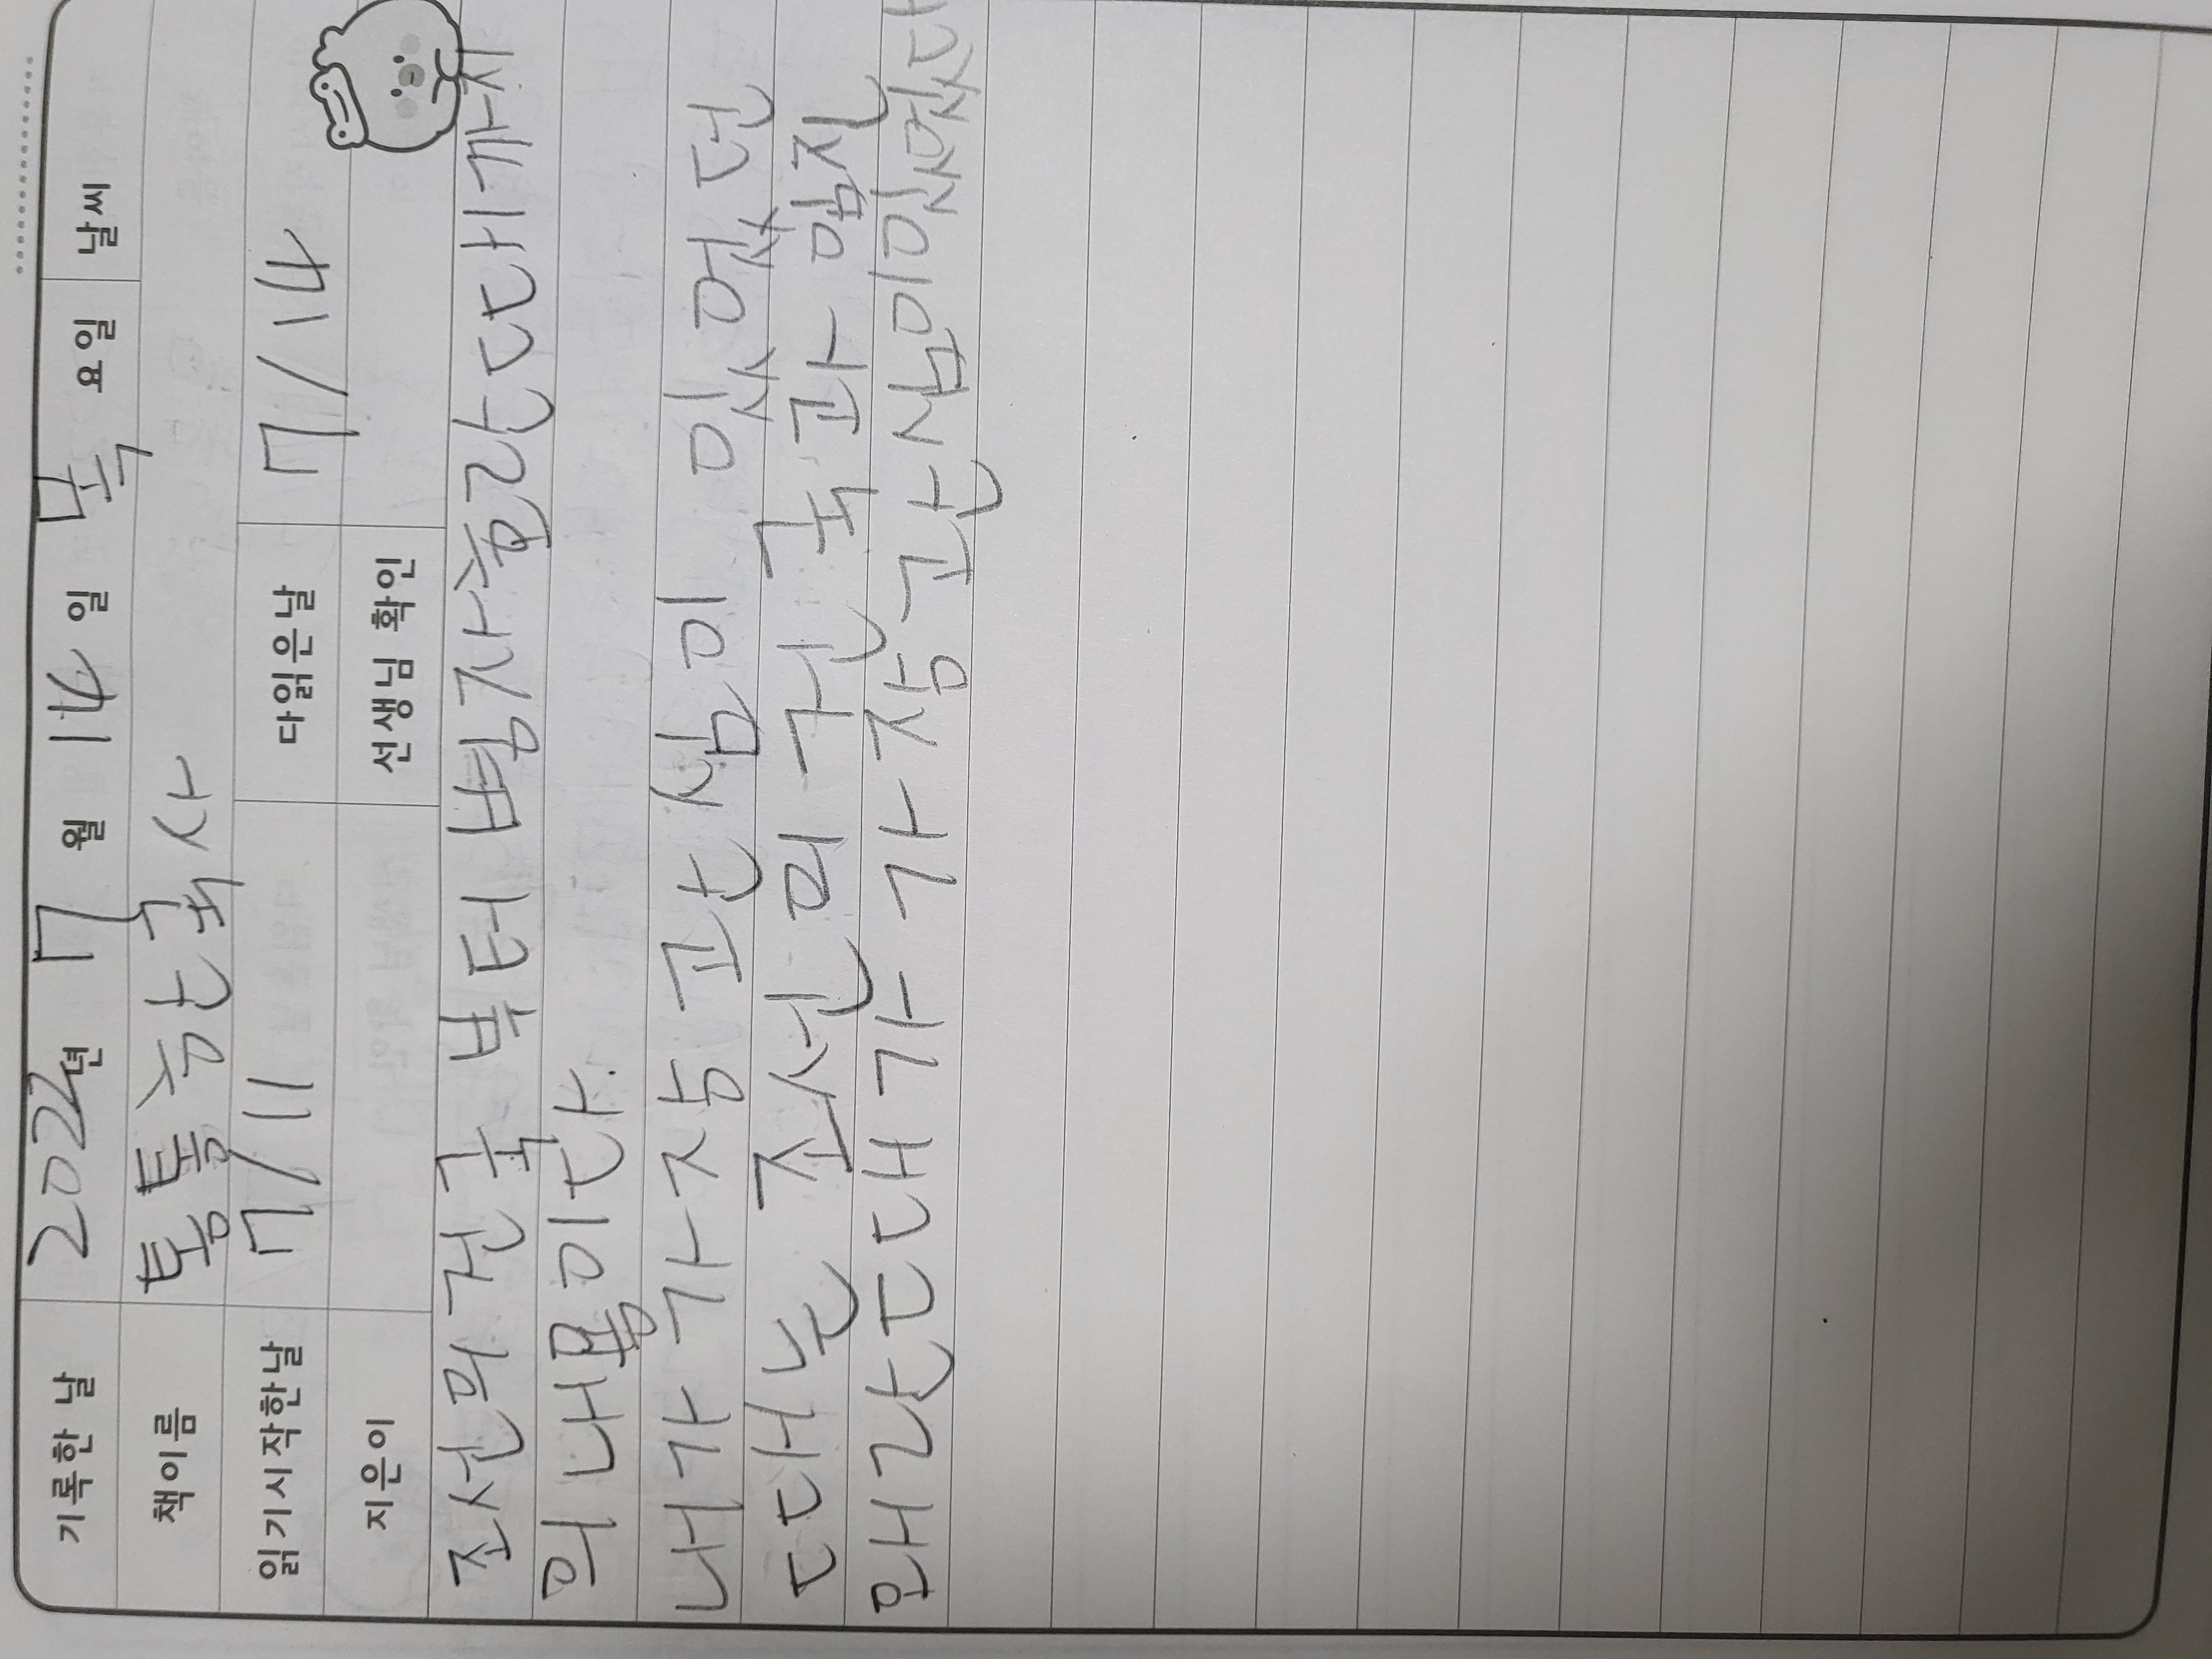 기록한 날 2022년 7월 14일 목요일 날씨
책이름 통통한국사
읽기시작한날 7/11 다읽은날 7/14
지은이 선생님 확인
조선의 건국 부터 병자호란 때까지
의 내용이다.
내가 가장 관심이 있었던
때는 조선의 건국과 임진
왜란때가 가장 관심이있었다